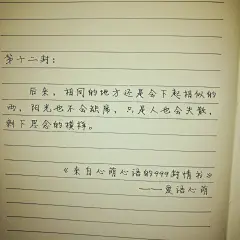 第十二封：
后来，相同的地方还是会下起相似的
雨，阳光也不会缺席，只是人也会失散，
剩下思念的模样。
《来自心萌心语的999封情书》
——夏语心萌